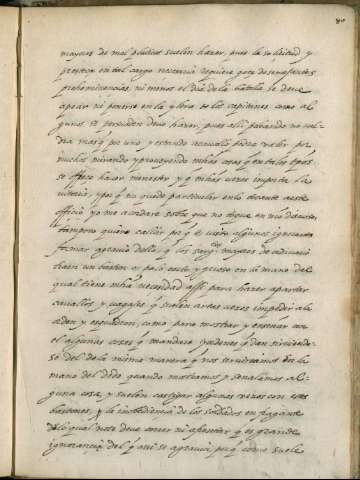 mayores de mas platica suelen hazer, pues la solicitud y
presteza en tal cargo necesaria requiere goze de semejantes
preheminencias, ni menos el dia de la batalla se deve
apear ni ponerse en la de los capitanes como al
gunos se persuaden deve hazer, pues alli parando no val-
dria mas q̃ por uno y estando a cavallo podra valer por
muchos mirando y proveyendo mũchas cosas q̃ en tales
se ofrece hazer menester y q̃ mũchas vezes importa la
victoria, y por q̃ no quede particular en lo tocante a este
officio yo me acordare sobre que no digue en mi
tampoco quiero callar por q̃ è visto algunos ignorantes
formar agravio della q̃ los sarg.tos mayores de ordinario
traen un baston o palo corto y grueso en la mano del
qual tiene mũcha necesidad assi para hazer apartar
cavallos y vagajes q̃ suelen artas vezes impedir la
orden y esquadron, como para mostrar y enseñar con
el algunas cosas q̃ mandan y ordenes q̃ dan sirviendo-
se del de la misma manera q̃ nos servimos en la
mano del dedo quando mostramos y señalamos al-
guna cosa, y suelen castigar algunas vezes con este
baston, y la inobediencia de los soldados en flagante
de lo qual no se deve correr ni afrentar q̃ es grande
ignorancia del q̃ assi se agravia, porq̃ como suele